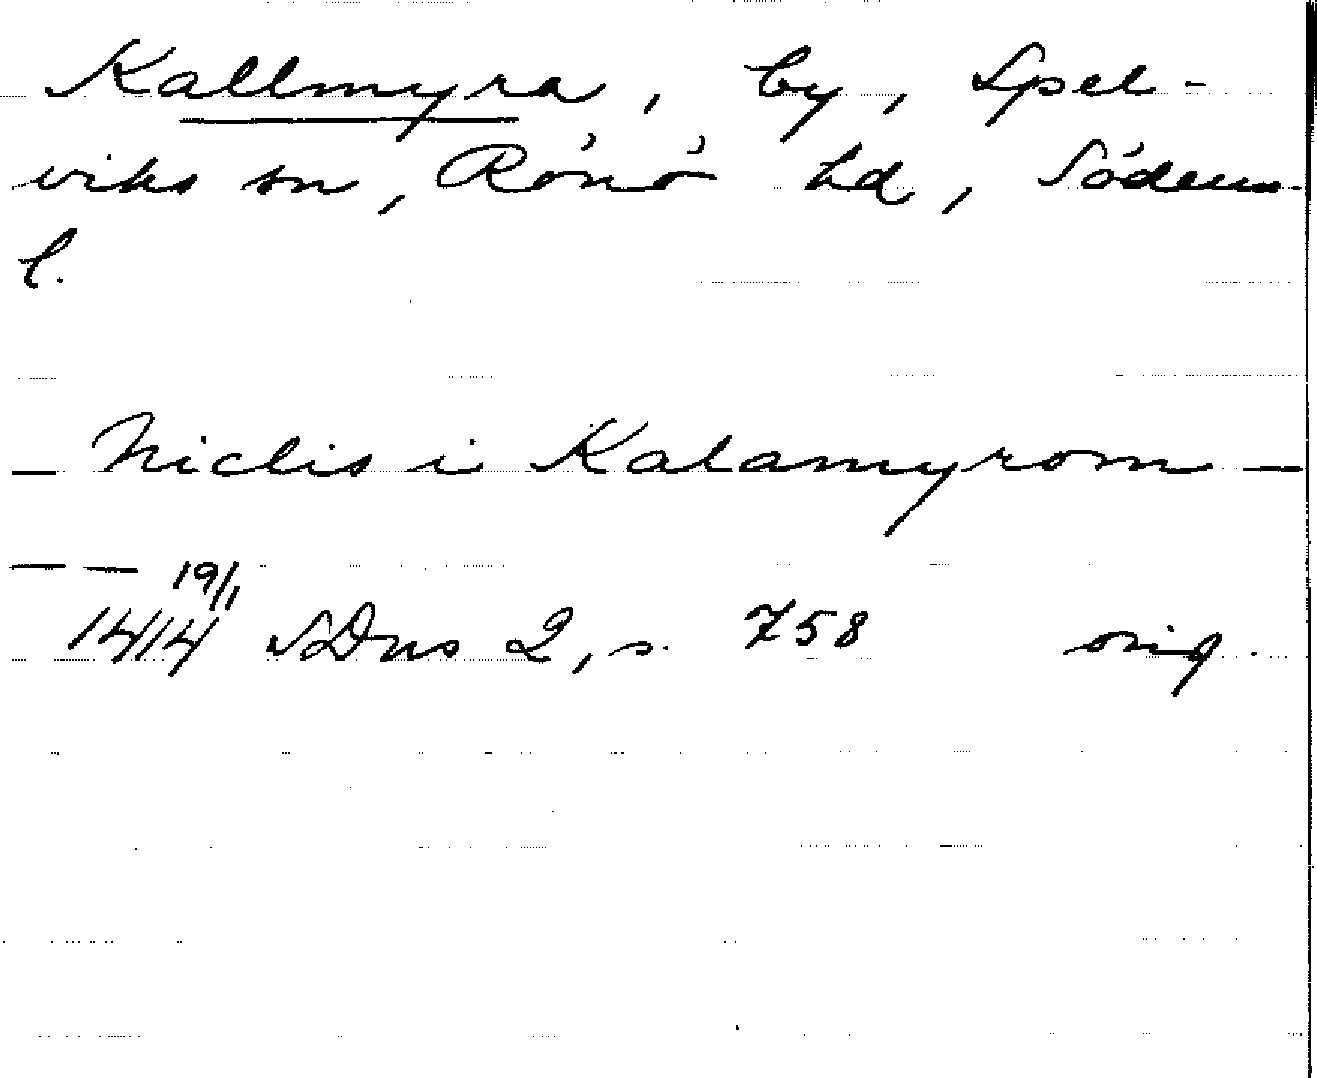 Kallmyra, by, Spel-
viks sn, Rönö hd, Söderm.
l.
— Niclis i Kalamyrom —
— — 19/1
1414 SDns 2, s. 758 orig.